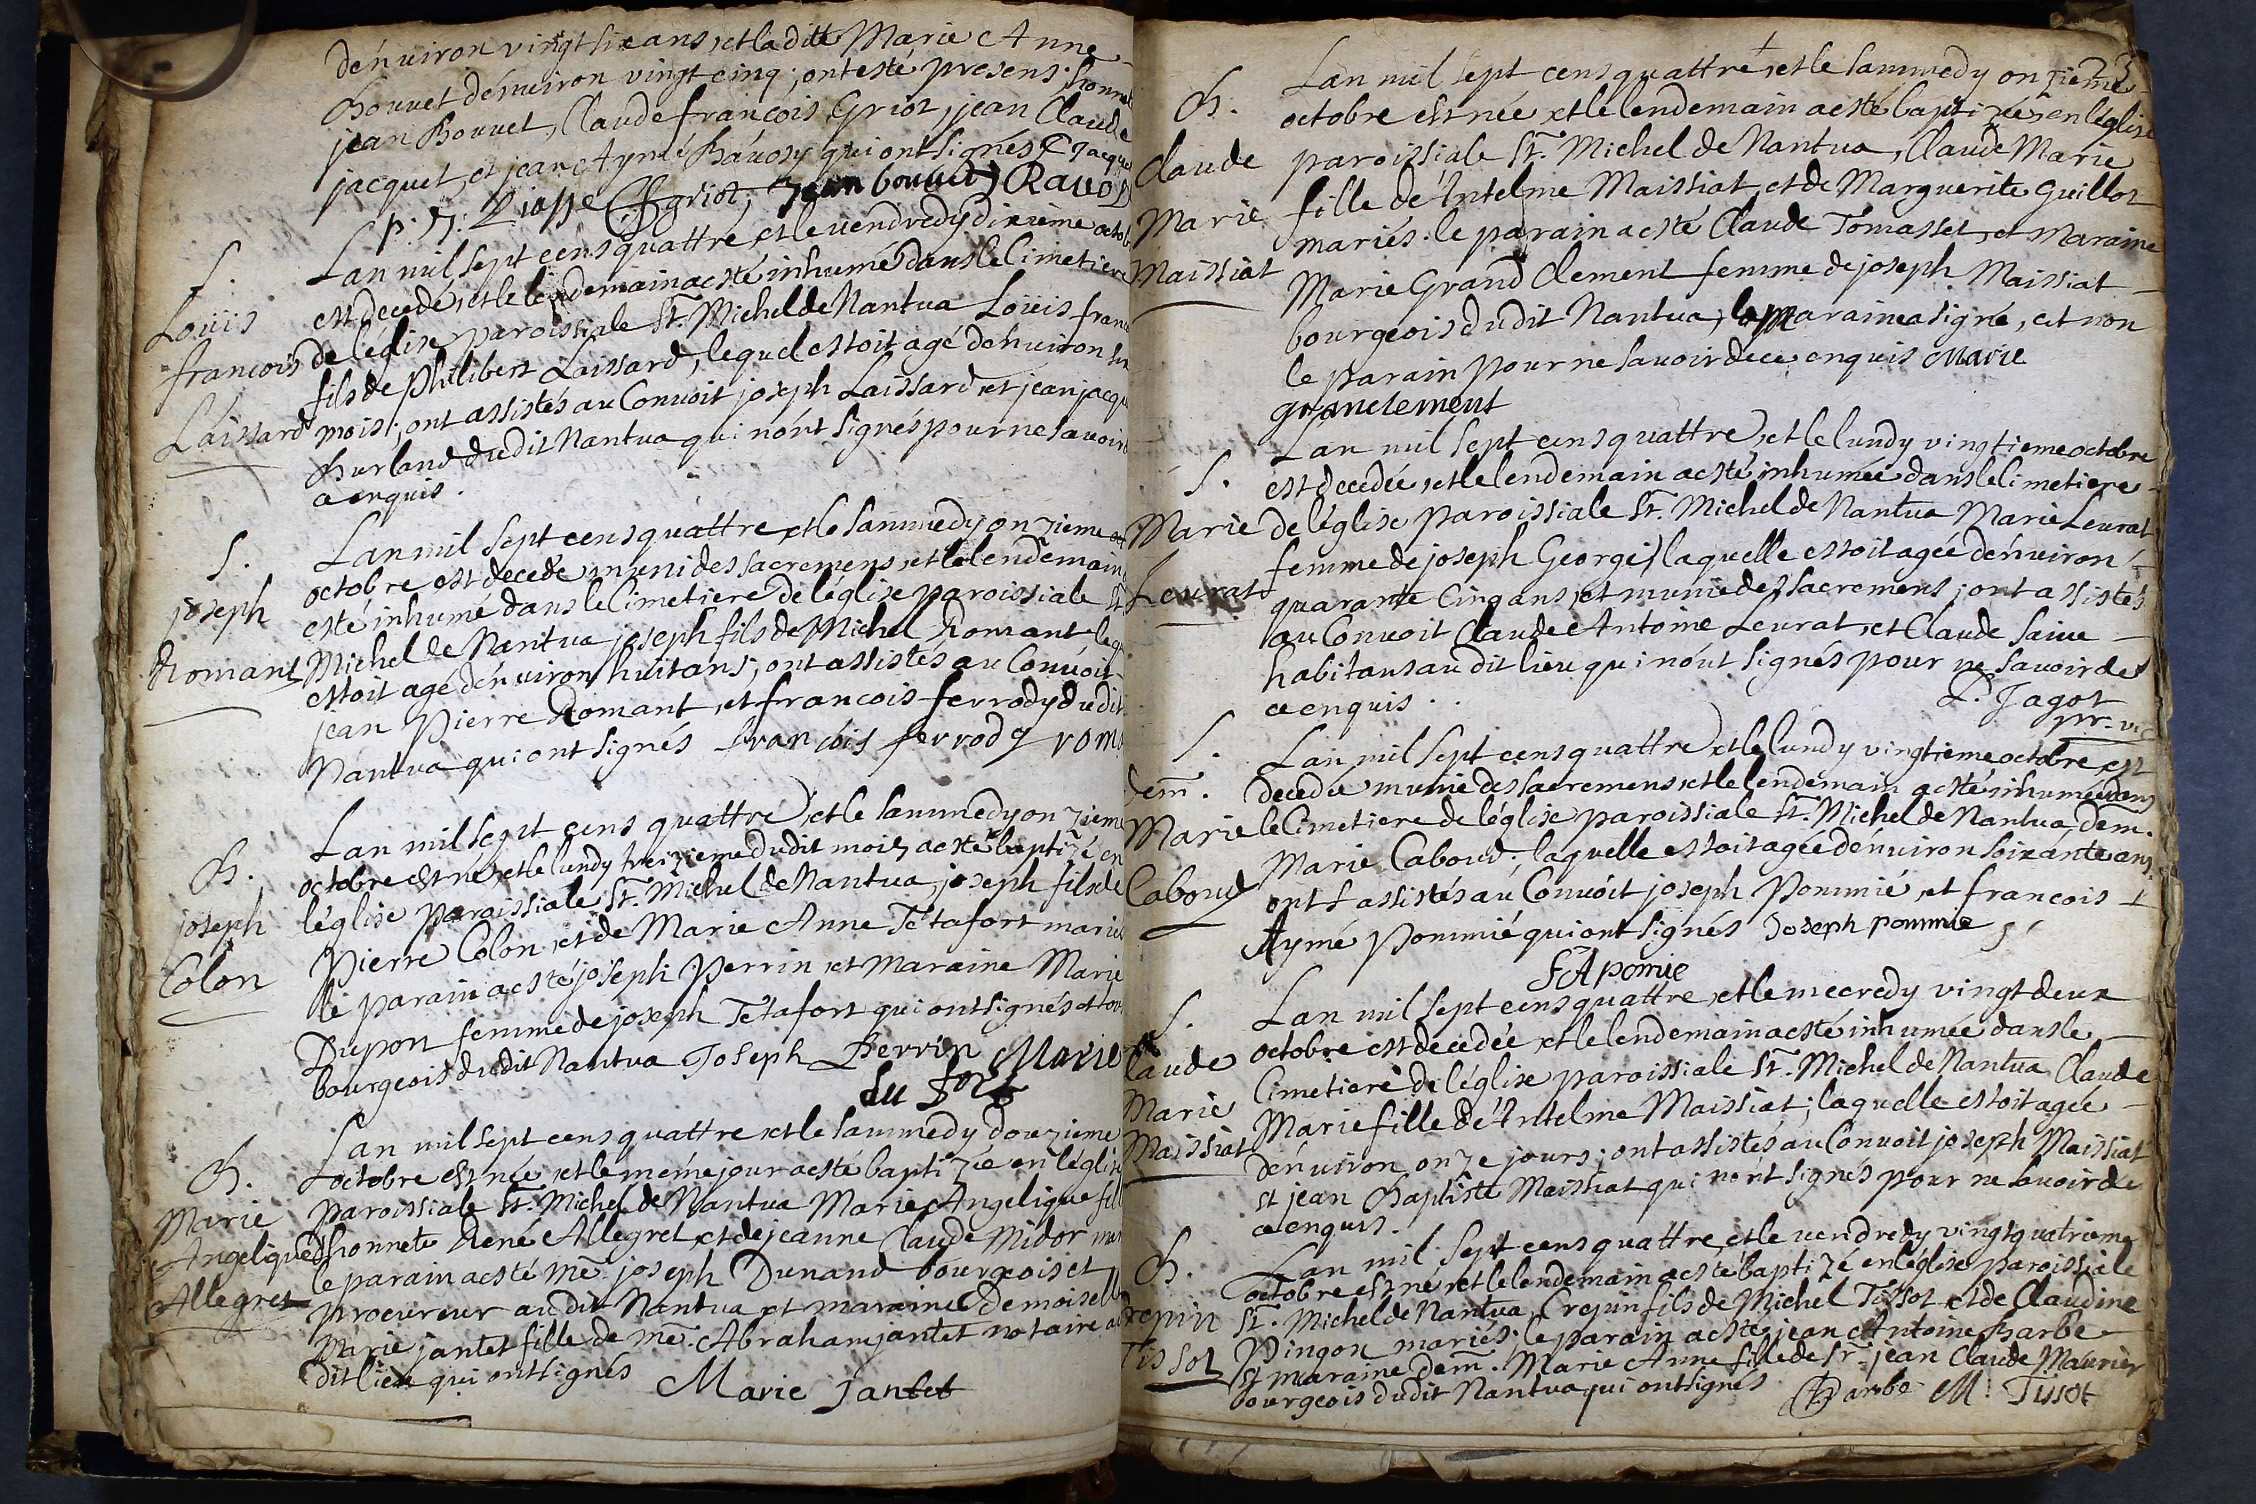 d'énuiron vingt six ans, et la ditte Marie Anne
Bouuet d'énuiron vingt cinq; ont esté presens: honne
jean Bouuet, Claude françois Griot, jean Claude
jacquet, et jean Aymé Rauosy qui ont signés
griot, Jean bouuet
S.
Lan mil sept cens quattre, et le vendredy dixième octob
est decedé, et le lendemain a esté inhumé dans le Cimetiere
Loüis
de l'église paroissiale St. Michel de Nantua Loüis franc
francois
fils de Philibert Laissard, lequel estoit agé d'énuiron
Laissard
mois; ont assistés au Conuoit joseph Laissard, et jean jacqu
Burland du dit Nantua qui n'ont signés pour ne sauoir
a enquis.
S.
Lan mil sept cens quattre, et le sammedy onzieme
octobre est decedé muni des sacremens, et le lendemain
joseph
esté inhumé dans le Cimetiere de l'église paroissiale St
Romant
Michel de Nantua joseph fils de Michel Romant leq
estoit agé d'énuiron huit ans; ont assistés au Conuoit
jean Pierre Romant, et francois ferrody du dit
Nantua qui ont signés françois ferrody rom
B.
Lan mil sept cens quattre, et le sammedy onzieme
octobre est né, et le lundy treizieme du dit mois a esté baptizé en
joseph
l'église paroissiale St. Michel de Nantua, joseph fils de
Colon
Pierre Colon, et de Marie Anne Tétafort mariés
le parain a esté joseph Perrin, et maraine Marie
Dupon femme de joseph Tétafort qui ont signés et
bourgeois du dit Nantua Joseph Perrin Marie
du
B.
Lan mil sept cens quattre, et le sammedy douzieme
octobre est née, et le méme jour a esté baptizée en l'église
Marie
paroissiale St. Michel de Nantua Marie Angelique fill
Angelique
d'honnete René Allegret, et de jeanne Claude Midor mar
Allegret
le parain a esté Me. joseph Dunand bourgeois et
procureur au dit Nantua et maraine Demoiselle
Marie jantet fille de Me. Abraham jantet notaire au
dit lieu qui ont signés
Marie Jantet
23
B.
Lan mil sept cens quattre, et le sammedy onzieme
octobre est née et le lendemain a esté baptizée en l'église
Claude
paroissiale St. Michel de Nantua, Claude Marie
Marie
fille de'Antelme Maissiat, et de Marguerite Guillot
Maissiat
mariés. le parain a esté Claude Tomasset, et Maraine
Marie Grand Clement femme de joseph Maissiat
bourgeois du dit Nantua, la maraine a signé, et non
le parain pour ne sauoir de ce enquis Marie
granclement
S.
Lan mil sept cens quattre, et le lundy vingtieme octobre
est decedée, et le lendemain a esté inhumée dans le Cimetiere
Marie
de l'église paroissiale St. Michel de Nantua Marie Leurat
Leurat
femme de joseph George, laquelle estoit agée d'énuiron
quarante Cinq ans, et munie des sacremens; ont assistés
au Conuoit Claude Antoine Leurat, et Claude Saiue
habitans au dit lieu qui n'ont signés pour ne sauoir de
ce enquis..
P. Jagot
pr. vic
S.
Lan mil sept cens quattre, et le lundy vingtieme octobre est
dem.
decedée munie des sacremens, et le lendemain a esté inhumée dans
Marie
le Cimetiere de l'église paroissiale St. Michel de Nantua, dem.
Caboud
Marie Caboud. laquelle estoit agée d'énuiron soixante ans,
ont assistés au Conuoit joseph Pommié, et francois
Aymé Pommié qui ont signés Joseph pommie
FA pomie
S.
Lan mil sept cens quattre, et le mecredy vingt deux
Claude
octobre est decedée, et le lendemain a esté inhumée dans le
Marie
Cimetiere de l'église paroissiale St. Michel de Nantua Claude
Maissiat
Marie fille de'Antelme Maissiat; laquelle estoit agée
d'énuiron onze jours; ont assistés au Conuoit joseph Maissiat
et jean Baptiste Maissiat qui n'ont signés pour ne sauoir de
ce enquis.
B.
Lan mil sept cens quattre, et le vendredy vingt quatrieme
octobre est né, et le lendemain a esté baptizé en l'église paroissiale
Crepin
St. Michel de Nantua, Crepin fils de Michel Tissot et de Claudine
Tissot
Pingon mariés. le parain a esté jean Antoine Barbe
et maraine dem. Marie Anne fille de Sr. jean Claude Maurier
bourgeois du dit Nantua qui ont signés Barbe M. Tissot